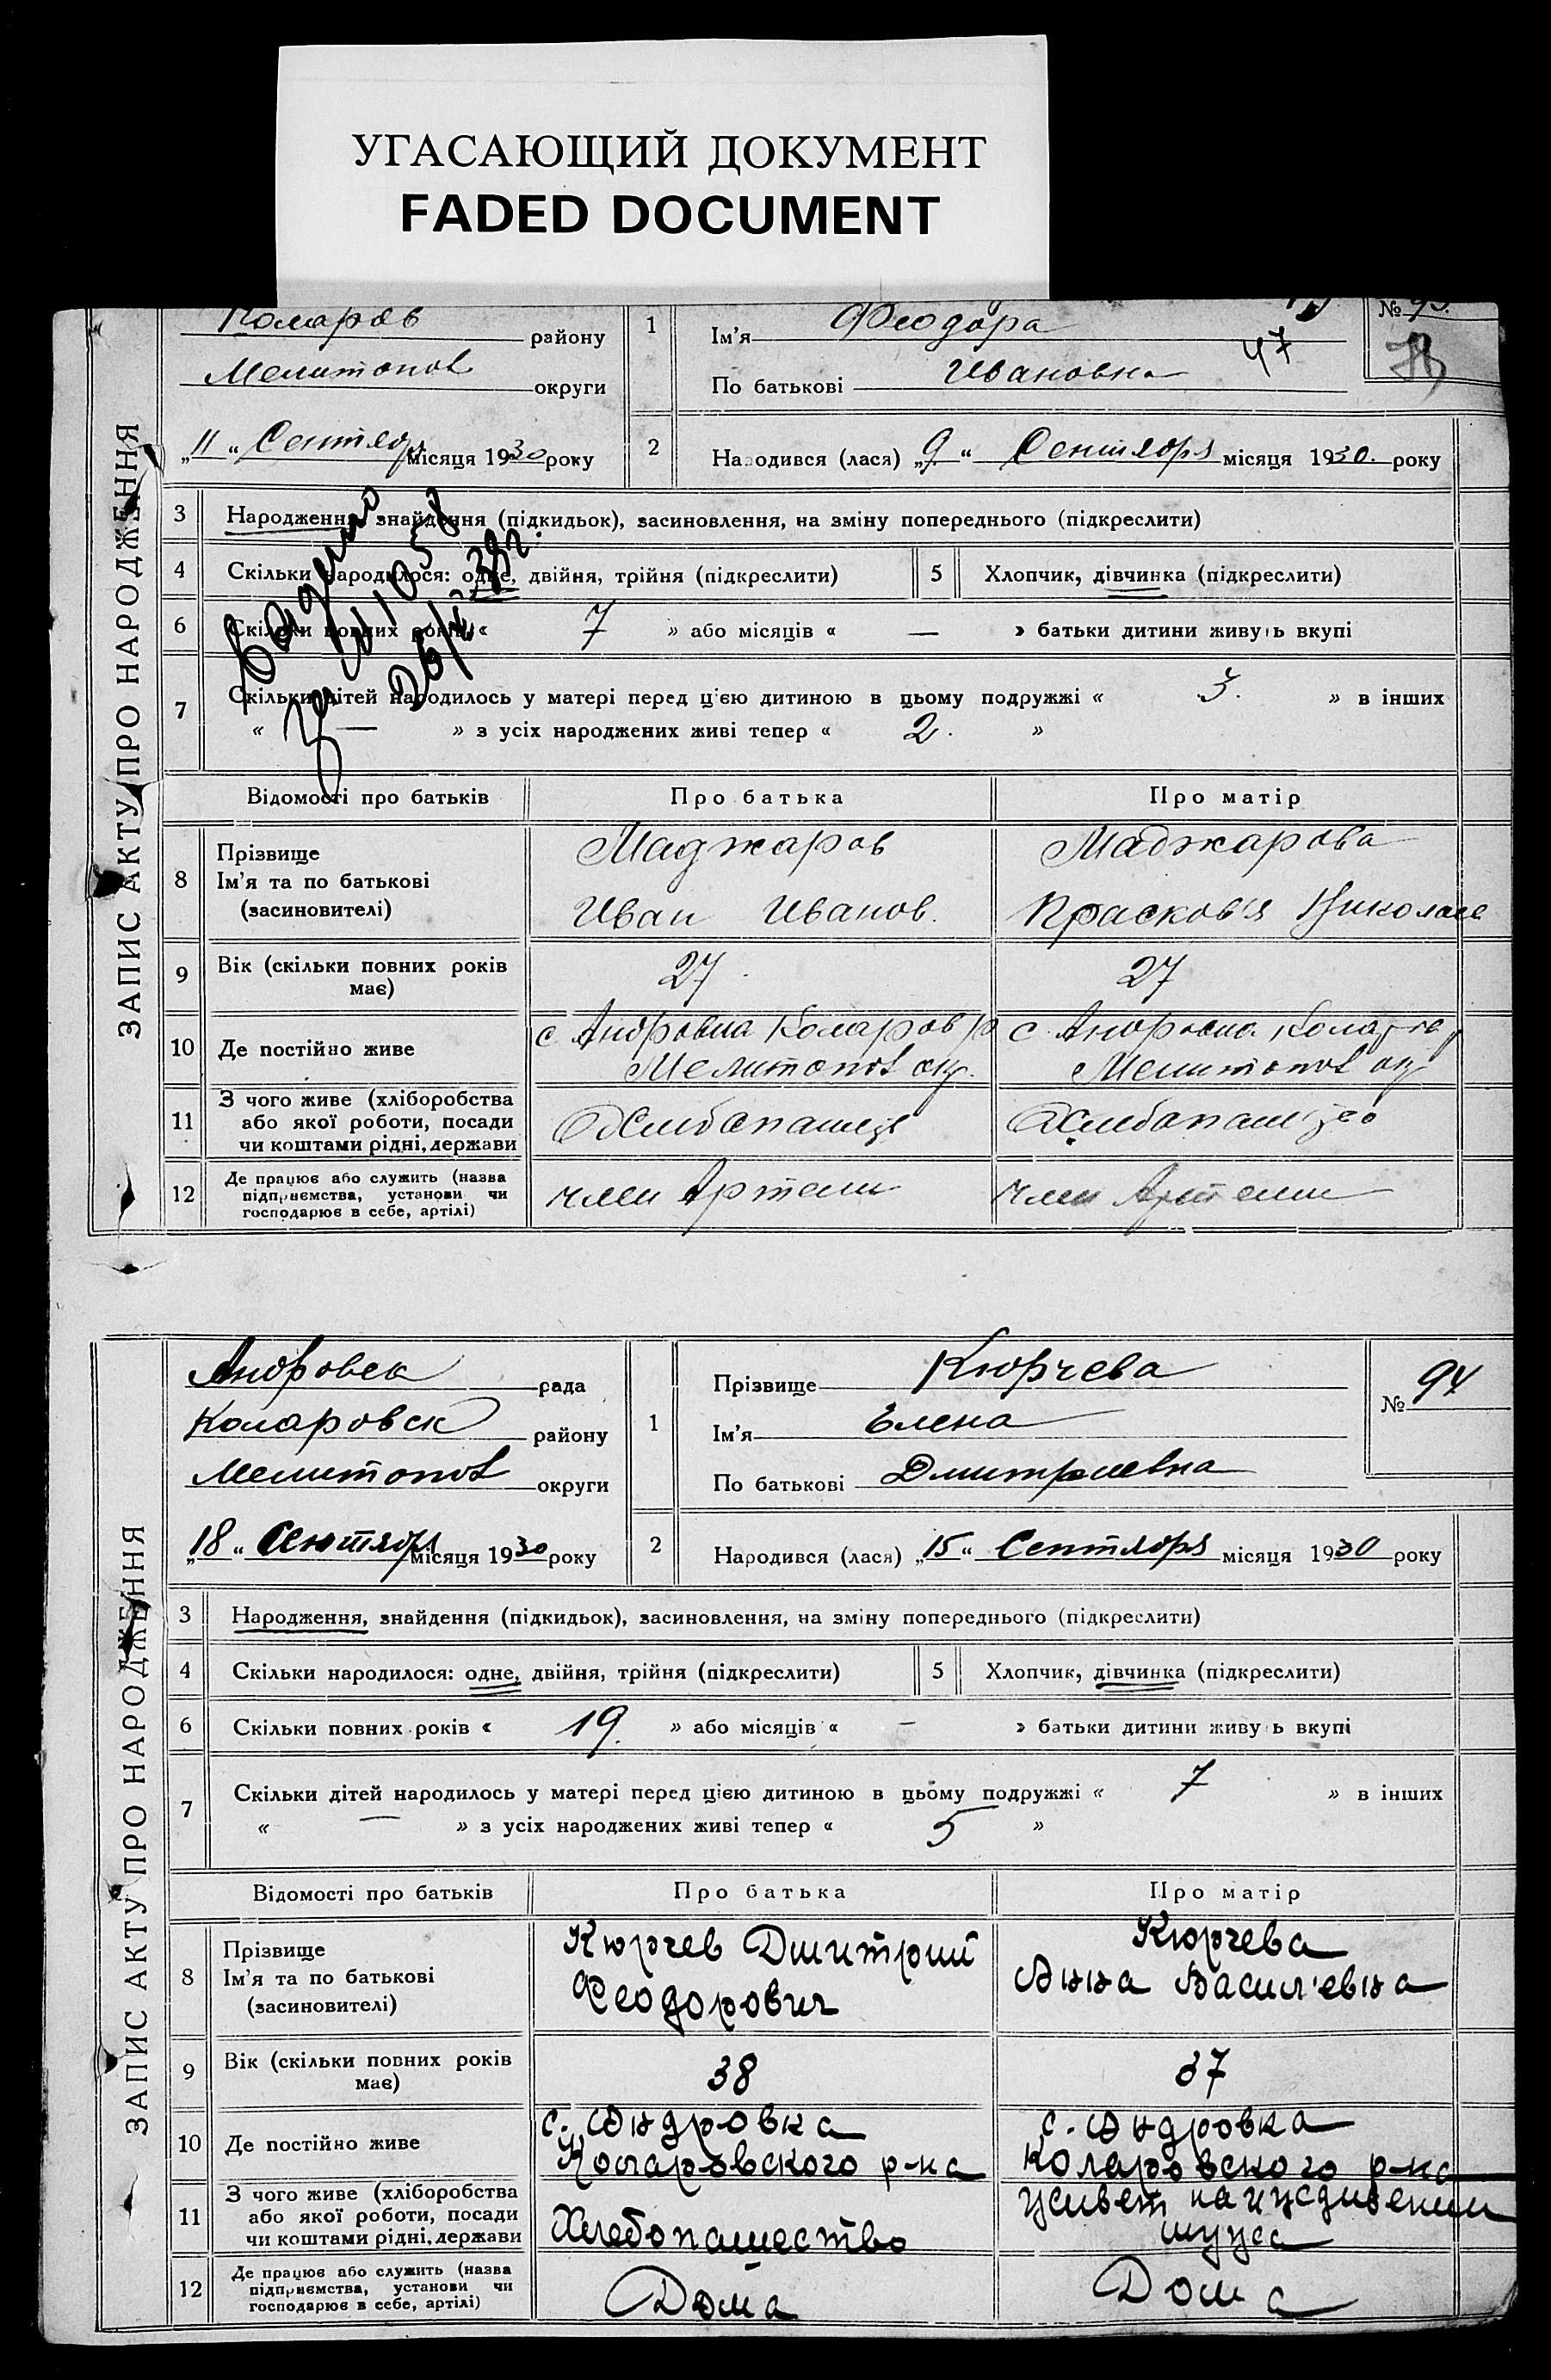 УГАСАЮЩИЙ ДОКУМЕНТ
FADED DOCUMENT
Коларов району
Мелитопов округи
„11“ Сентября місяця 1930 року
1 Ім'я Феодора
47
По батькові Ивановна
№ 93.
2 Народився (лася) „9“ Сентября місяця 1930. року
ЗАПИС АКТУ ПРО НАРОДЖЕННЯ
3 Народження, знайдення (підкидьок), засиновлення, на зміну попереднього (підкреслити)
4 Скільки народилося: одне, двійня, трійня (підкреслити) 5 Хлопчик, дівчинка (підкреслити)
6 Скільки повних років « 7 » або місяців « — » батьки дитини живуть вкупі
7 Скільки дітей народилось у матері перед цією дитиною в цьому подружжі « 3. » в інших
« — » з усіх народжених живі тепер « 2. »
Відомості про батьків Про батька Про матір
8 Прізвище
Ім'я та по батькові
(засиновителі)
Маджаров
Иван Иванов.
Маджарова
Прасков'я Николаев
9 Вік (скільки повних років має) 27. 27
10 Де постійно живе
с Андровка Коларов р
Мелитопов окр.
с. Андровка Колар
Мелитопов окр
11 З чого живе (хліборобства
або якої роботи, посади
чи коштами рідні, держави
12 Де працює або служить (назва
підприємства, установи чи
господарює в себе, артілі)
член Артели
член Артели
Андровск рада
Коларовск району
Мелитопов округи
„18“ Сентября місяця 1930 року
1 Прізвище Кюрчева
Ім'я Елена
По батькові Дмитриевна
№ 94
2 Народився (лася) „15“ Сентября місяця 1930 року
ЗАПИС АКТУ ПРО НАРОДЖЕННЯ
3 Народження, знайдення (підкидьок), засиновлення, на зміну попереднього (підкреслити)
4 Скільки народилося: одне, двійня, трійня (підкреслити) 5 Хлопчик, дівчинка (підкреслити)
6 Скільки повних років « 19. » або місяців « — » батьки дитини живуть вкупі
7 Скільки дітей народилось у матері перед цією дитиною в цьому подружжі « 7 » в інших
« — » з усіх народжених живі тепер « 5 »
Відомості про батьків Про батька Про матір
8 Прізвище
Ім'я та по батькові
(засиновителі)
Кюрчев Дмитрий
Феодорович
Кюрчева
Анна Васил'евна
9 Вік (скільки повних років має) 38 37
10 Де постійно живе
с. Андровка
Коларовского р-на
с. Андровка
Коларовского р-на
11 З чого живе (хліборобства
або якої роботи, посади
чи коштами рідні, держави
Хлебопашество
живет на иждивении
мужа
12 Де працює або служить (назва
підприємства, установи чи
господарює в себе, артілі)
Дома
Дома